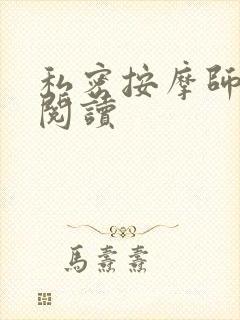 私密按摩師
閱讀
馬騫騫